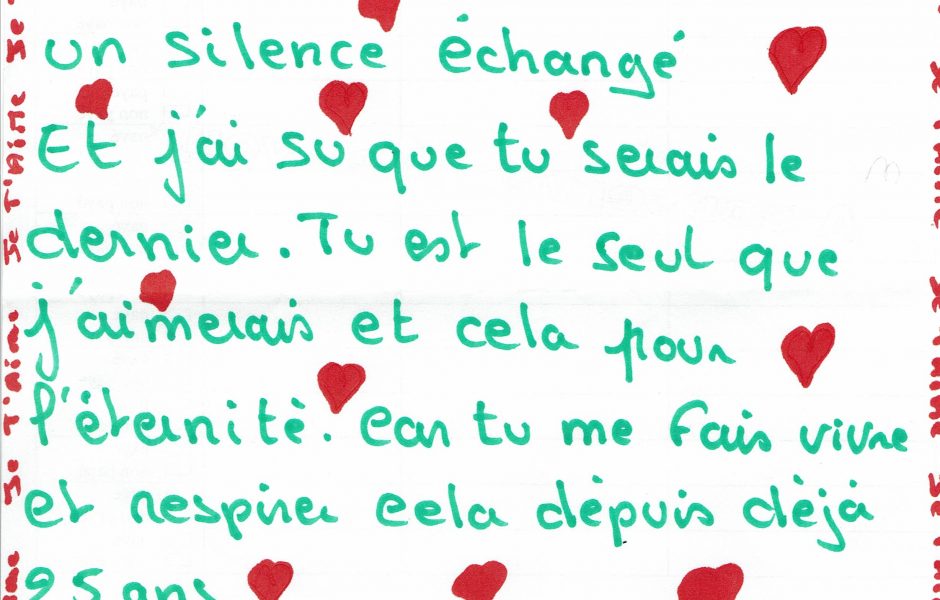 un silence échangé
Et j'ai su que tu serais le
dernier. Tu est le seul que
j'aimerais et cela pour
l'éternité. Car tu me fais vivre
et respirer cela dépuis déjà
25 ans
Je T'aime Je T'aime Je